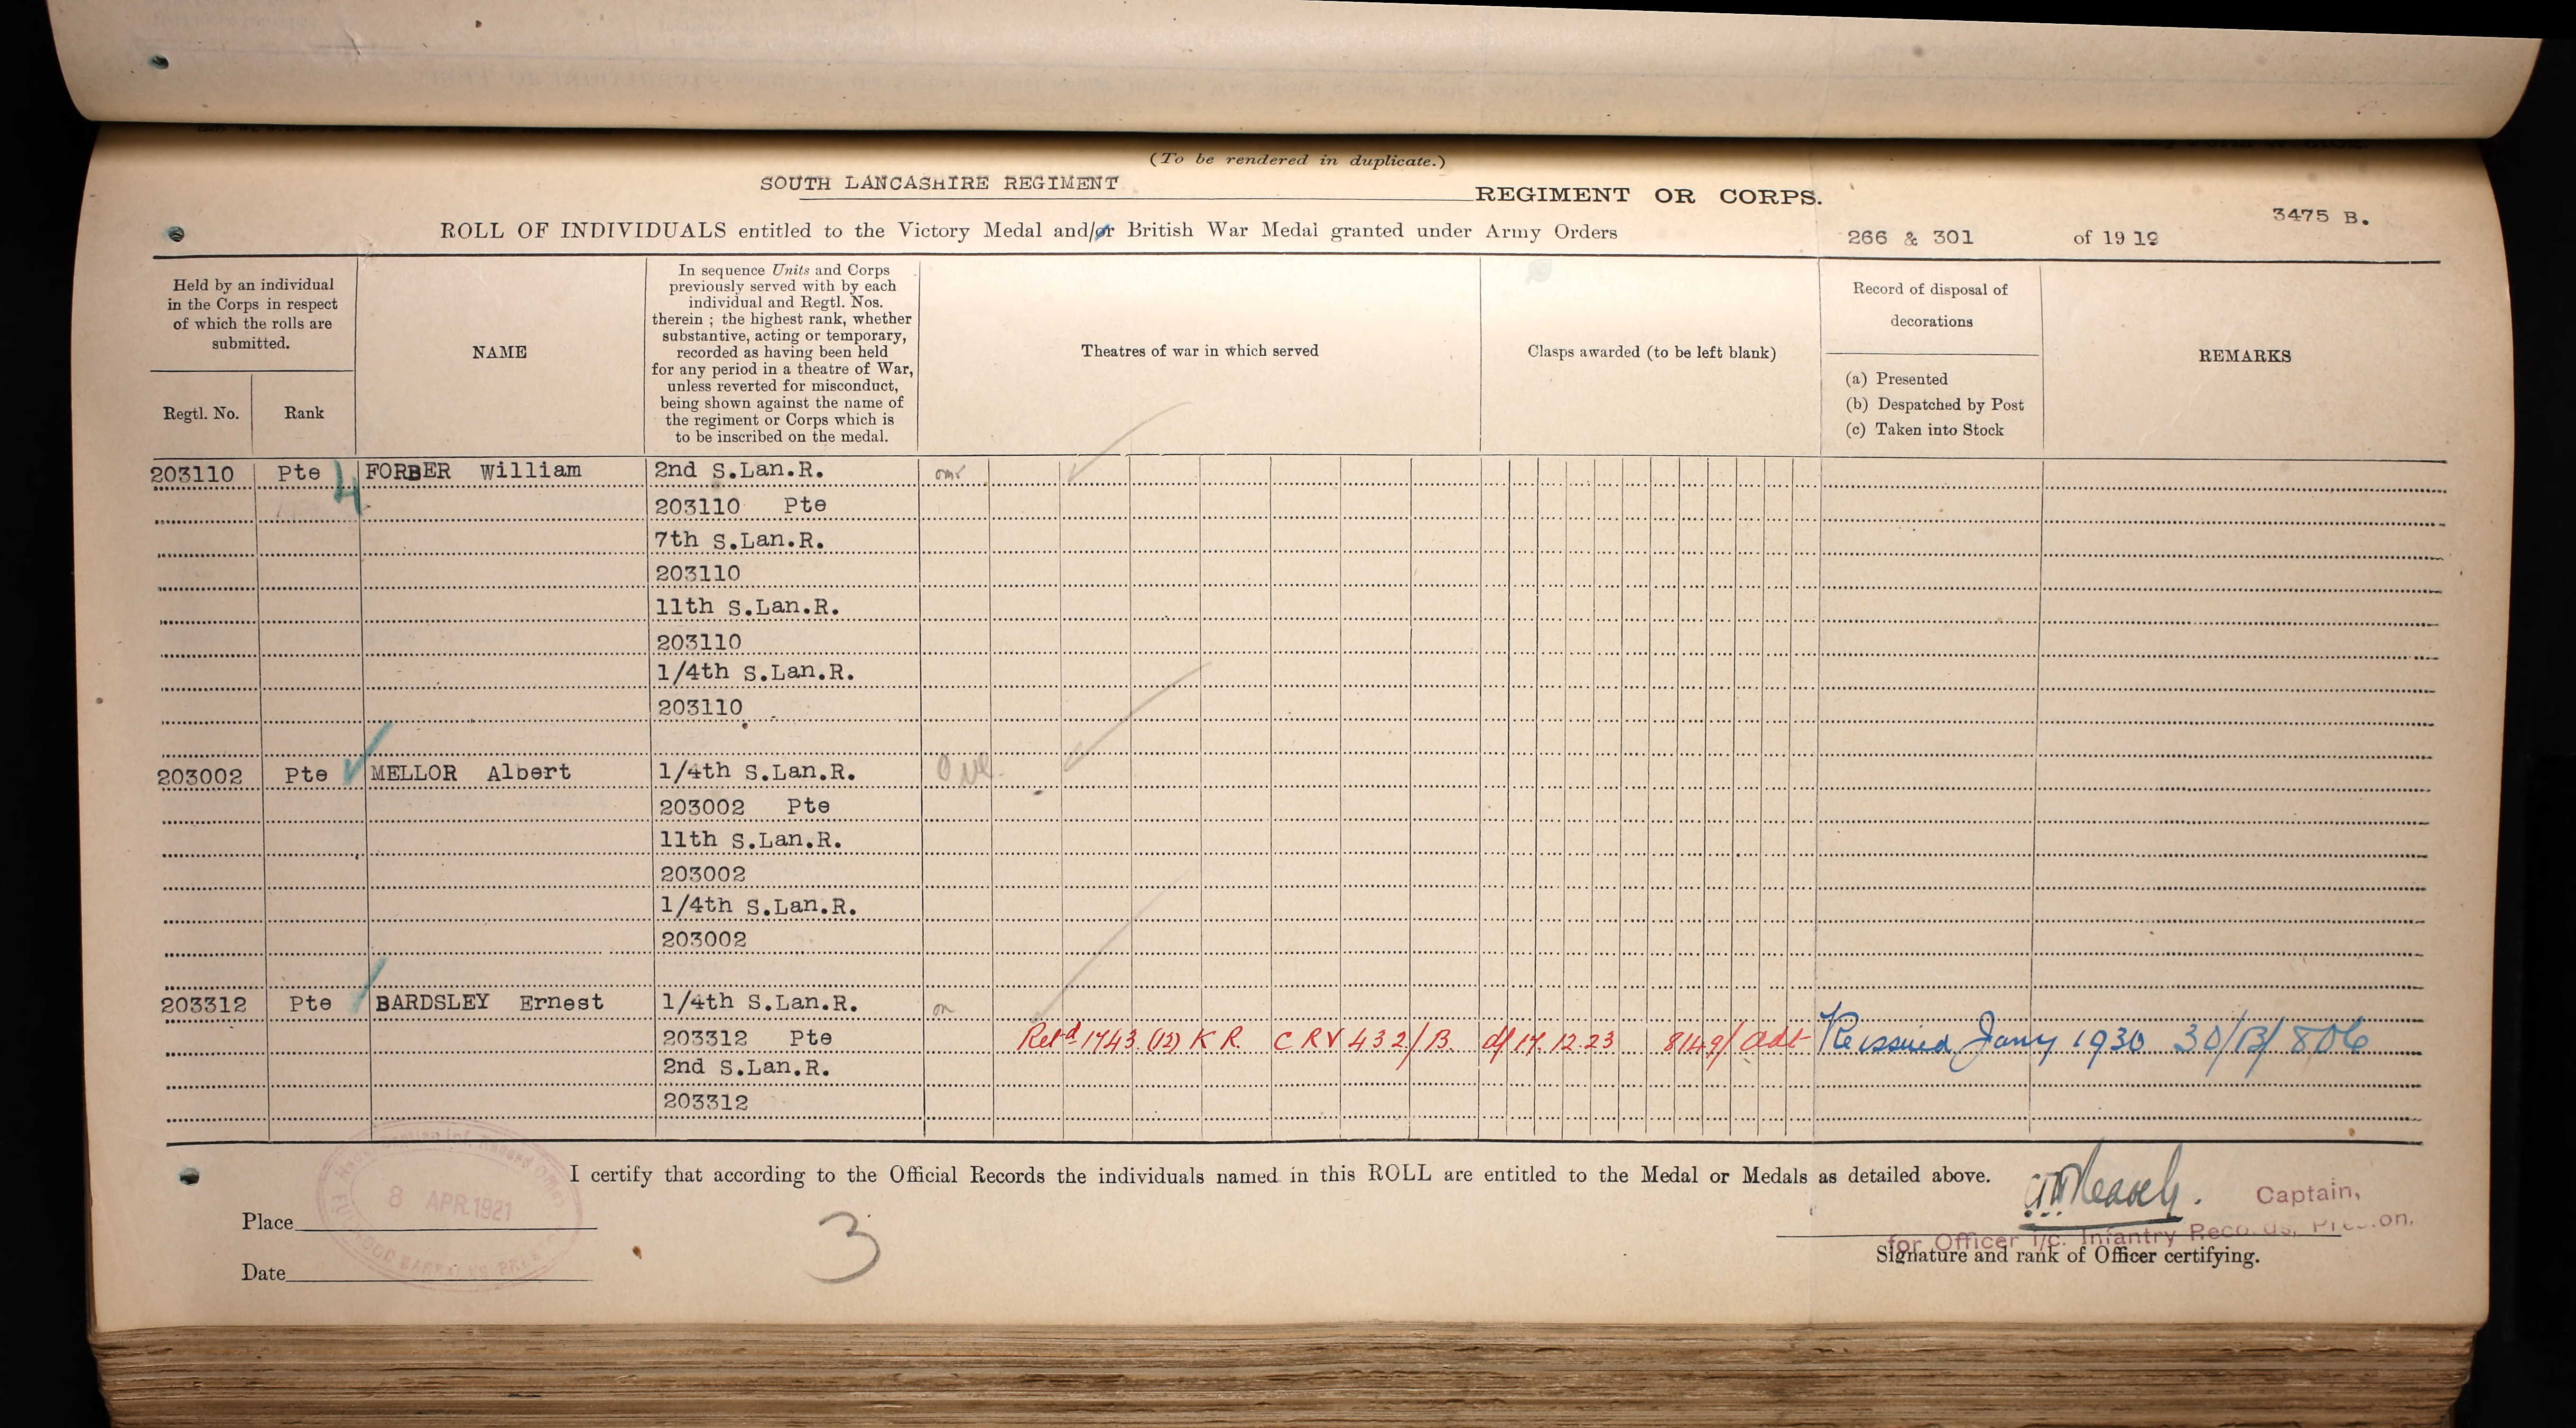 (To be rendered in duplicate.)
SOUTH LANCASHIRE REGIMENT REGIMENT OR CORPS.
3475 B.
ROLL OF INDIVIDUALS entitled to the Victory Medal and/or British War Medal granted under Army Orders 266 & 301 of 1919
Held by an individual
in the Corps in respect
of which the rolls are
submitted.
Regtl. No.
Rank
NAME
In sequence Units and Corps
previously served with by each
individual and Regtl. Nos.
therein ; the highest rank, whether
substantive, acting or temporary,
recorded as having been held
for any period in a theatre of War,
unless reverted for misconduct,
being shown against the name of
the regiment or Corps which is
to be inscribed on the medal.
Theatres of war in which served
Clasps awarded (to be left blank)
Record of disposal of
decorations
(a) Presented
(b) Despatched by Post
(c) Taken into Stock
REMARKS
203110 Pte FORBER William 2nd S.Lan.R.
203110 Pte
7th S.Lan.R.
203110
11th S.Lan.R.
203110
1/4th S.Lan.R.
203110
203002 Pte MELLOR Albert 1/4th S.Lan.R.
203002 Pte
11th S.Lan.R.
203002
1/4th S.Lan.R.
203002
203312 Pte BARDSLEY Ernest 1/4th S.Lan.R.
203312 Pte Retd 1743 (12) K R. C R V 432/B. d/17.12.23 8149/Adt Reissued Jany 1930 30/B/806
2nd S.Lan.R.
203312
I certify that according to the Official Records the individuals named in this ROLL are entitled to the Medal or Medals as detailed above.
Captain,
for Officer i/c. Infantry Records, Preston.
Signature and rank of Officer certifying.
Place
Date
8 APR. 1921
3